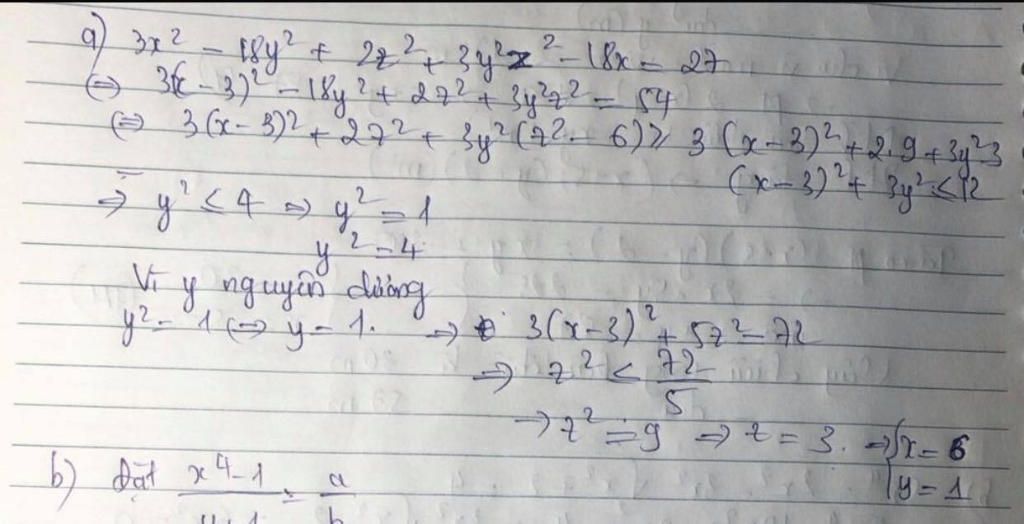 a) 3x² - 18y² + 2z² + 3y²z² - 18x = 27
(⇒ 3(x - 3)² - 18y² + 2z² + 3y²z² = 54
(⇒ 3(x - 3)² + 2z² + 3y²(z² - 6) ≥ 3(x - 3)² + 2.9 + 3y².3
(x - 3)² + 3y² ≤ 12
⇒ y² ≤ 4 ⇒ y² = 1
y² = 4
Vì y nguyên dương
y² = 1 (⇒ y = 1. → 3(x - 3)² + 5z² = 72
⇒ z² ≤ 72/5
→ z² = 9 ⇒ z = 3. ⇒ { x = 6
y = 1
b) đặt x⁴ - 1 / y + 1 = a / b